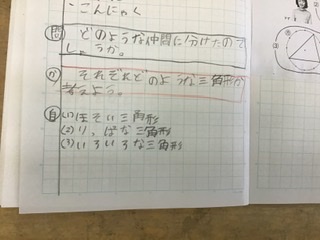 、こんにゃく
問 どのような仲間に分けたので
しょうか。
か それぞれどのような三角形か
考えよう。
自 (1)ほそい三角形
(2)りっぱな三角形
(3)いろいろな三角形